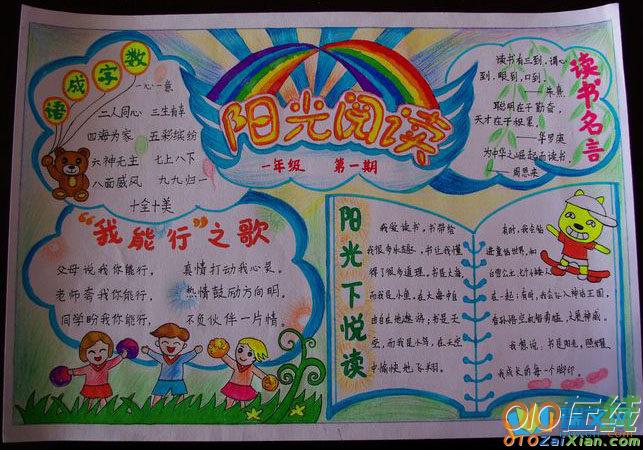 数字成语
一心一意
二人同心 三生有幸
四海为家 五彩缤纷
六神无主 七上八下
八面威风 九九归一
十全十美
阳光阅读
一年级 第一期
读书名言
读书有三到,谓心
到,眼到,口到。
——朱熹
聪明在于勤奋,
天才在于积累。
——华罗庚
为中华之崛起而读书。
——周恩来
“我能行”之歌
父母说我你能行, 真情打动我心灵。
老师夸我你能行, 热情鼓励方向明。
同学盼我你能行, 不负伙伴一片情。
阳光下悦读
我爱读书,书带给
我很多乐趣,书让我懂
得了很多道理。书是大海
而我是小鱼,在大海中自
由自在地遨游;书是天
空,而我是小鸟,在天空
中愉快地飞翔。
有时,我会钻
进童话世界,和
白雪公主、七个小矮人
在一起;有时,我会飞入神话王国,
孙悟空 大显神威。
我想说,书是阳光,照耀
我成长的每一个脚印。
010在线
010ZaiXian.com